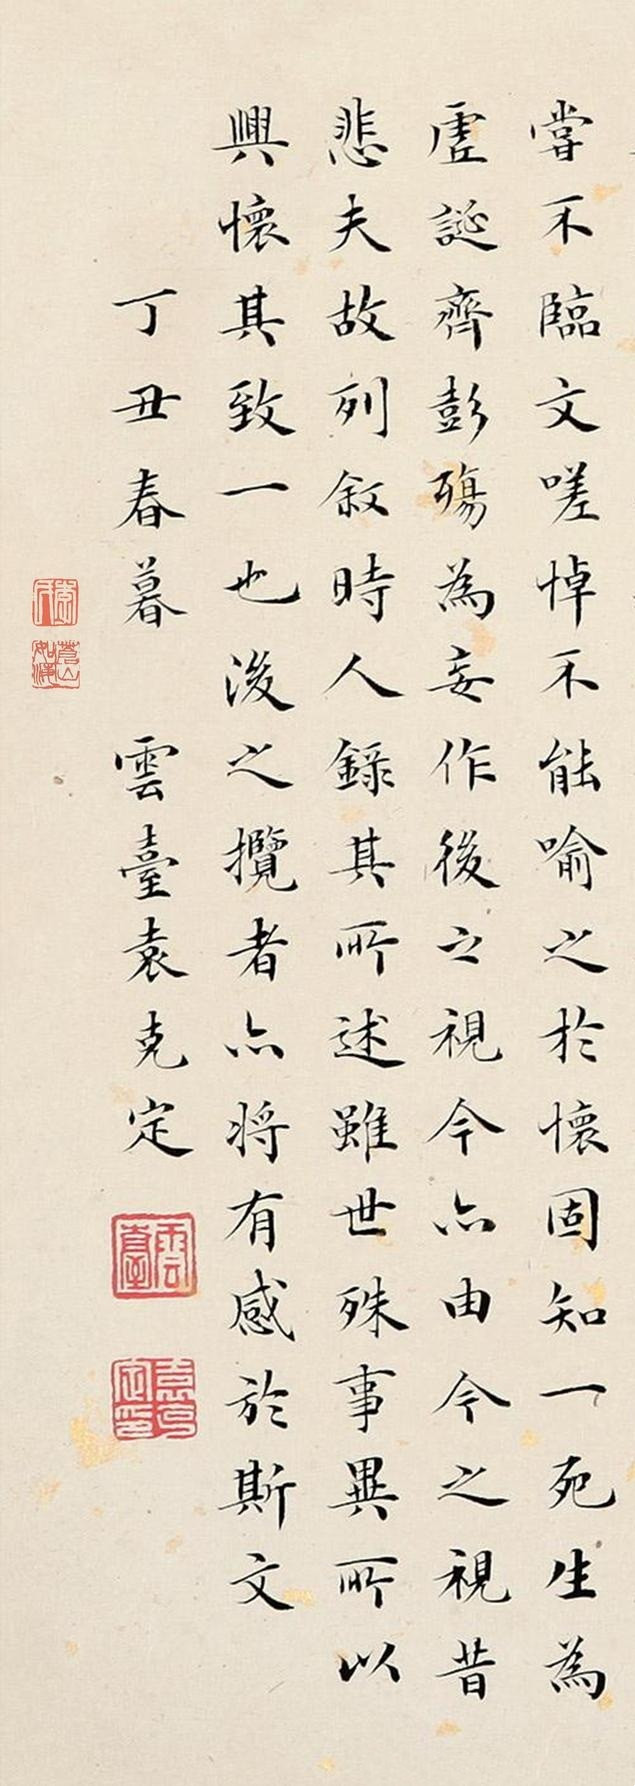 嘗不臨文嗟悼不能喻之於懷固知一死生為
虛誕齊彭殤為妄作後之視今亦由今之視昔
悲夫故列敘時人錄其所述雖世殊事異所以
興懷其致一也後之攬者亦將有感於斯文
丁丑春暮 雲臺袁克定
雲臺
袁克定印